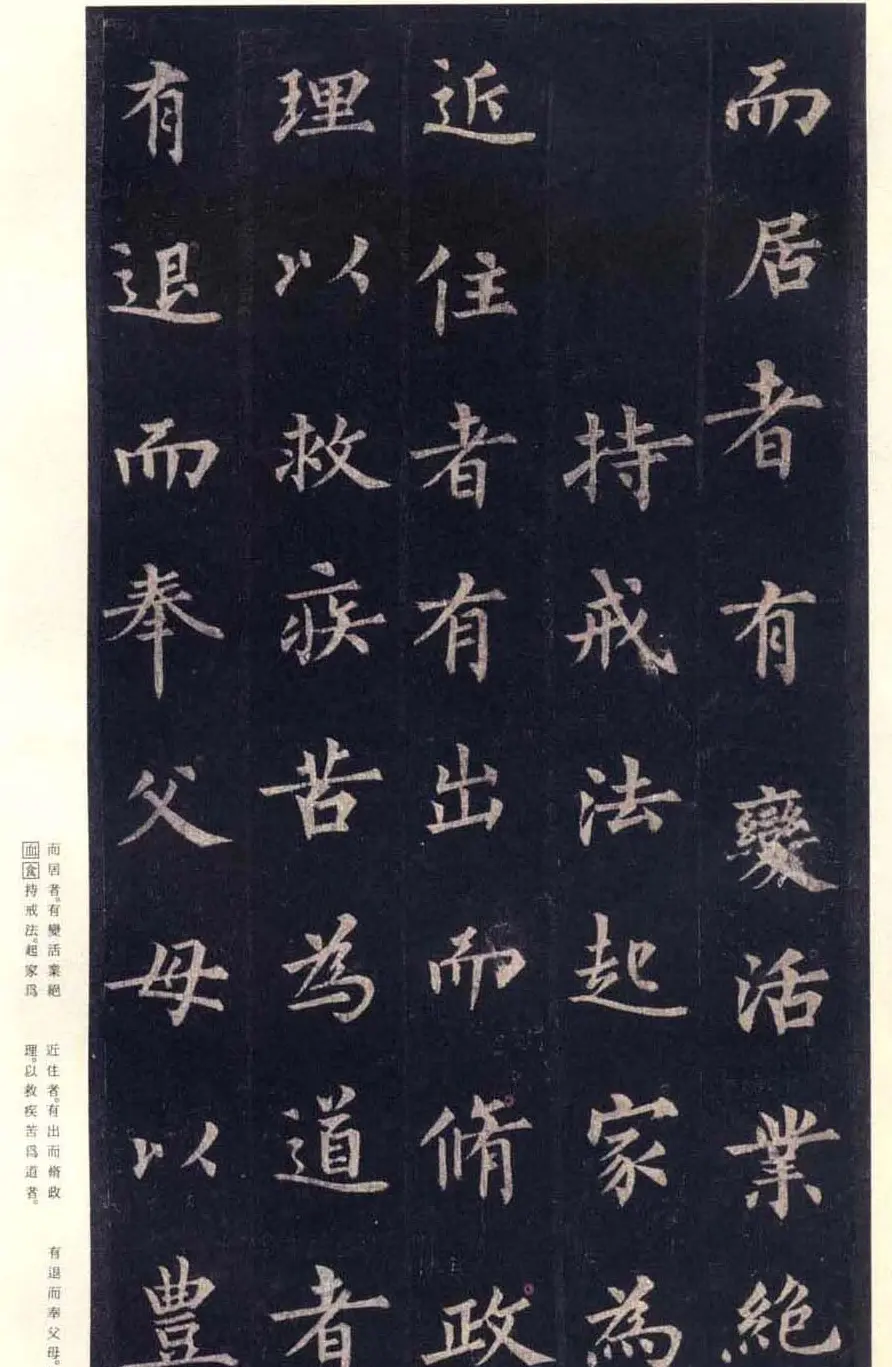 而居者有變活業絶
持戒法起家為
近住者有出而脩政
理以救疾苦為道者
有退而奉父母以豊
而居者。有變活業絕
血食持戒法。起家爲
近住者。有出而脩政
理。以救疾苦爲道者。
有退而奉父母。